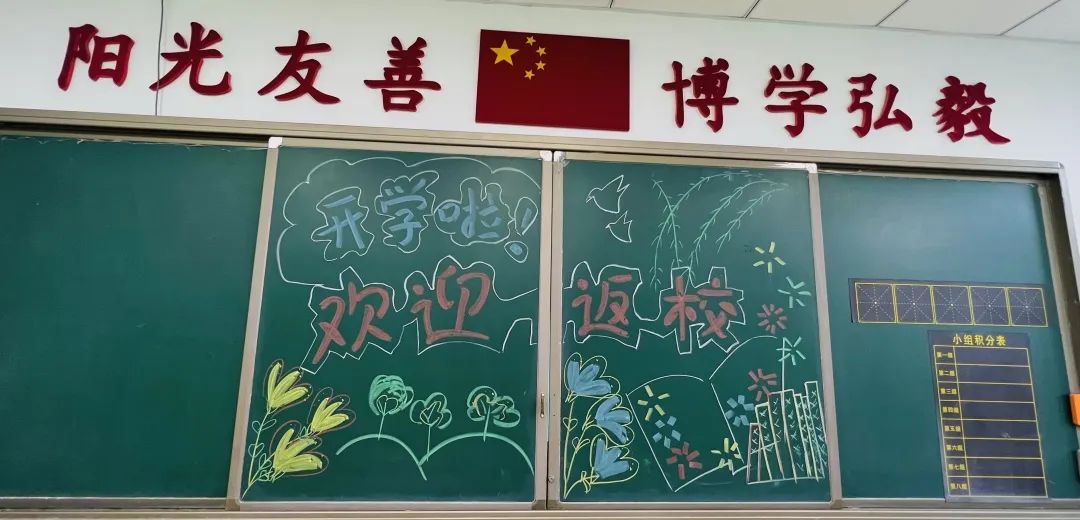 阳光友善 博学弘毅
开学啦！
欢迎返校
小组积分表
第一组
第二组
第三组
第四组
第五组
第六组
第七组
第八组